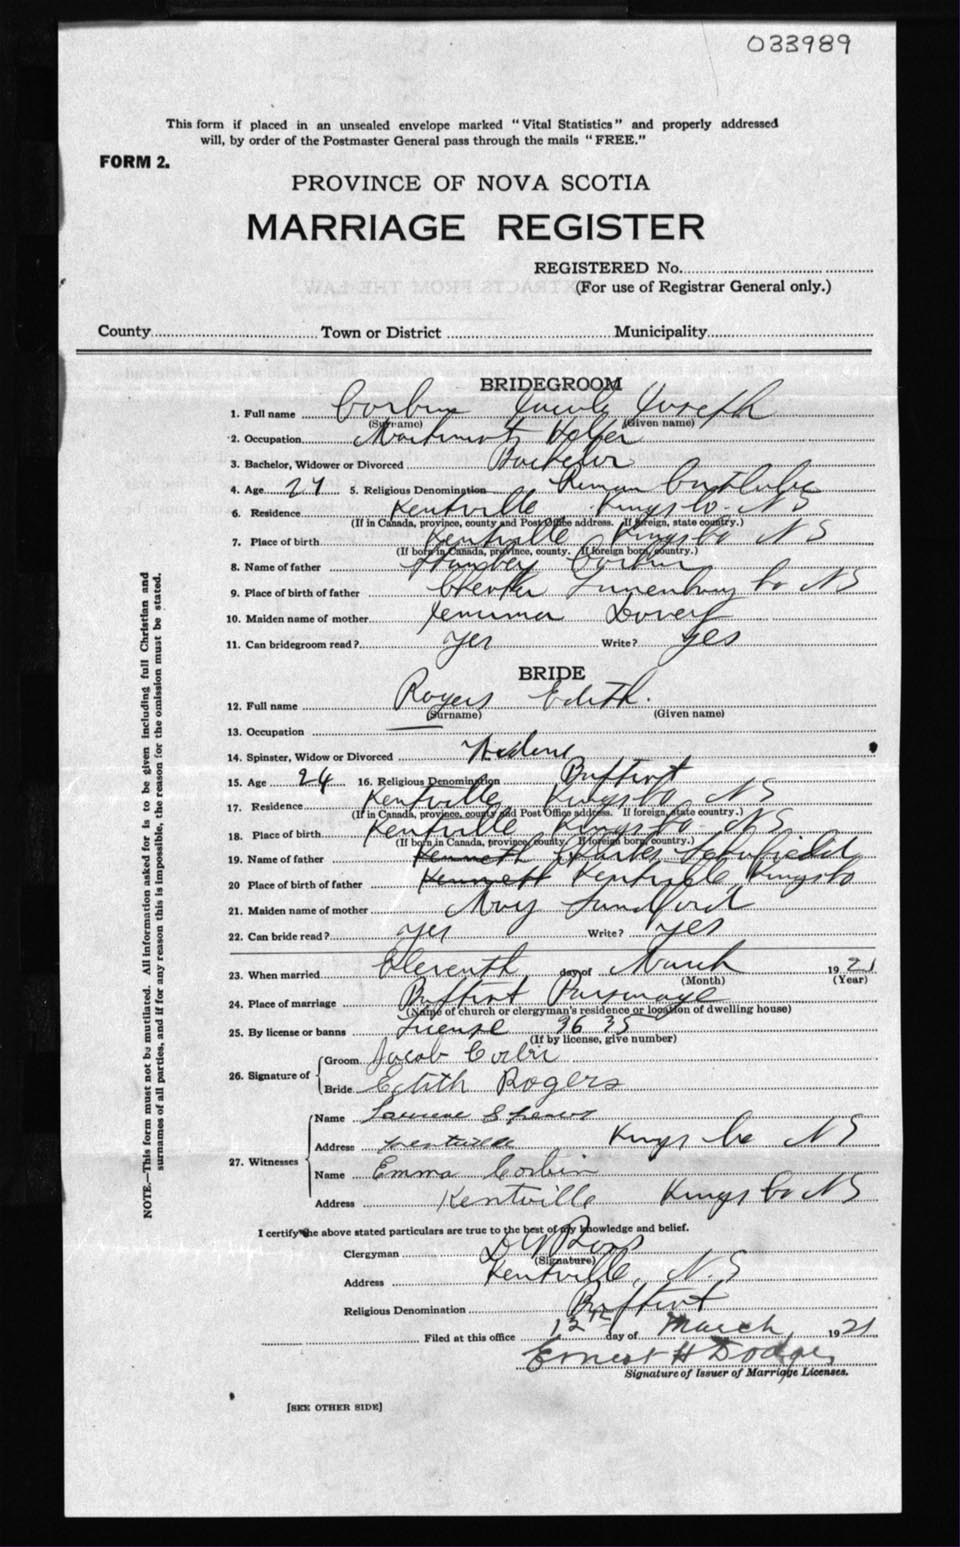 033989
This form if placed in an unsealed envelope marked "Vital Statistics" and properly addressed
will, by order of the Postmaster General pass through the mails "FREE."
FORM 2.
PROVINCE OF NOVA SCOTIA
MARRIAGE REGISTER
REGISTERED No.
(For use of Registrar General only.)
County Town or District Municipality
BRIDEGROOM
1. Full name Corbin Jacob Joseph
(Surname) (Given name)
2. Occupation
3. Bachelor, Widower or Divorced Bachelor
4. Age 27 5. Religious Denomination Roman Catholic
6. Residence Kentville Kings Co. N S
(If in Canada, province, county and Post Office address. If foreign, state country.)
7. Place of birth Kentville Kings Co N S
(If born in Canada, province, county. If foreign born, country.)
8. Name of father Corbin
9. Place of birth of father Chester Lunenburg Co N S
10. Maiden name of mother Jemima
11. Can bridegroom read? Yes Write? Yes
BRIDE
12. Full name Rogers Edith.
(Surname) (Given name)
13. Occupation
14. Spinster, Widow or Divorced Widow
15. Age 24 16. Religious Denomination Baptist
17. Residence Kentville Kings Co N S
(If in Canada, province, county and Post Office address. If foreign, state country.)
18. Place of birth Kentville Kings Co. N S
(If born in Canada, province, county. If foreign born, country.)
19. Name of father Kenneth Charles Schofield
20 Place of birth of father Kennett Kentville Kings Co
21. Maiden name of mother Mary Sandford
22. Can bride read? Yes Write? Yes
23. When married Eleventh day of March 1921
(Month) (Year)
24. Place of marriage Baptist Parsonage
(Name of church or clergyman's residence or location of dwelling house)
25. By license or banns License 36 35
(If by license, give number)
26. Signature of Groom Jacob Corbin
Bride Edith Rogers
27. Witnesses Name Spears
Address Kentville Kings Co N S
Name Emma Corbin
Address Kentville Kings Co N S
I certify the above stated particulars are true to the best of my knowledge and belief.
Clergyman Ross
(Signature)
Address Kentville, N.S
Religious Denomination Baptist
Filed at this office 12th day of March 1921
Ernest H Dodge
Signature of Issuer of Marriage Licenses.
[SEE OTHER SIDE]
NOTE.—This form must not be mutilated. All information asked for is to be given including full Christian and
surnames of all parties, and if for any reason this is impossible, the reason for the omission must be stated.